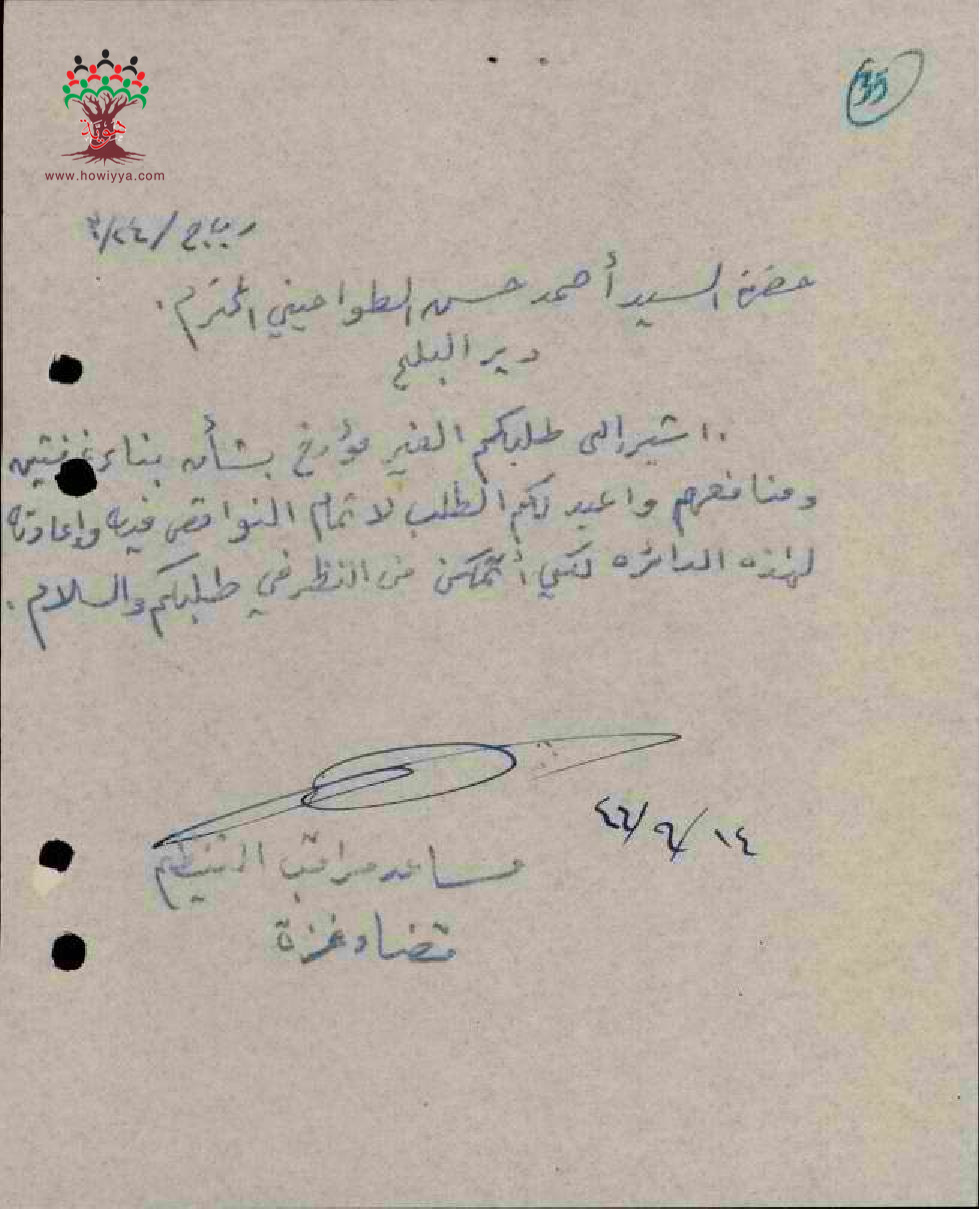 35
هوية
www.howiyya.com
حضرة السيد أحمد حسن الطواحيني المحترم.
دير البلح
اشير الى طلبكم الغير مؤرخ بشأن بناء غرفتين
ومنافعهم واعيد لكم الطلب لاتمام النواقص فيه واعادته
لهذه الدائره لكي أتمكن من النظر في طلبكم والسلام.
مساعد مراقب التنظيم
قضاء غزة